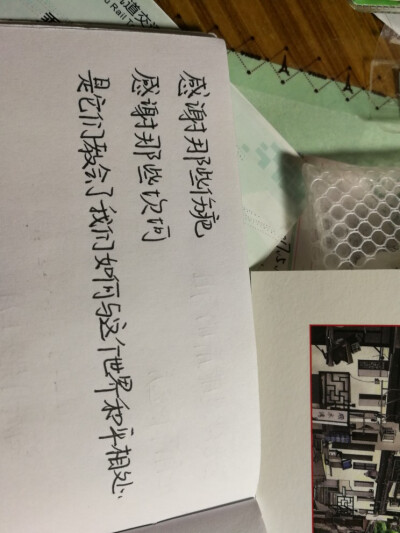 感谢那些伤疤
感谢那些坎坷
是它们教会了我们如何与这个世界和平相处.
道交
d Rail T